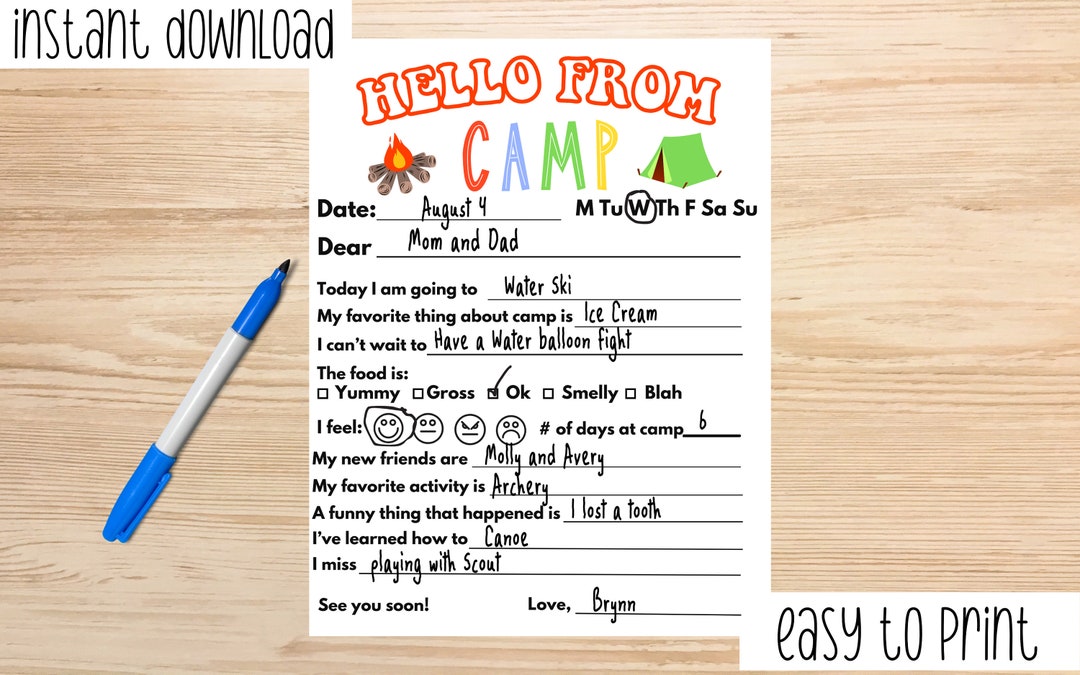 instant download
HELLO FROM
CAMP
Date: August 4 M Tu W Th F Sa Su
Dear Mom and Dad
Today I am going to Water Ski
My favorite thing about camp is Ice Cream
I can't wait to Have a Water balloon fight
The food is:
Yummy Gross Ok Smelly Blah
I feel: # of days at camp 6
My new friends are Molly and Avery
My favorite activity is Archery
A funny thing that happened is I lost a tooth
I've learned how to Canoe
I miss playing with Scout
See you soon! Love, Brynn
easy to print